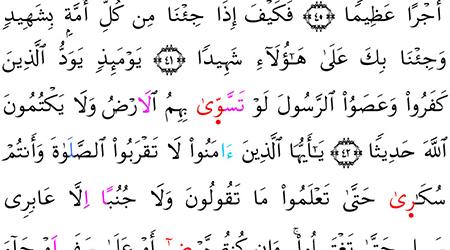 أَجْرًا عَظِيمًا ﴿٤٠﴾ فَكَيْفَ إِذَا جِئْنَا مِن كُلِّ أُمَّةِۭ بِشَهِيدٍ
وَجِئْنَا بِكَ عَلَىٰ هَٰٓؤُلَآءِ شَهِيدًا ﴿٤١﴾ يَوْمَئِذٍ يَوَدُّ ٱلَّذِينَ
كَفَرُواْ وَعَصَوُاْ ٱلرَّسُولَ لَوْ تَسَّوّىٰ بِهِمُ ٱلَارْضُ وَلَا يَكْتُمُونَ
ٱللَّهَ حَدِيثًا ﴿٤٢﴾ يَٰٓأَيُّهَا ٱلَّذِينَ ءَامَنُواْ لَا تَقْرَبُواْ ٱلصَّلَوٰةَ وَأَنتُمْ
سُكَٰرىٰ حَتَّىٰ تَعْلَمُواْ مَا تَقُولُونَ وَلَا جُنُبًا اِلَّا عَابِرِى